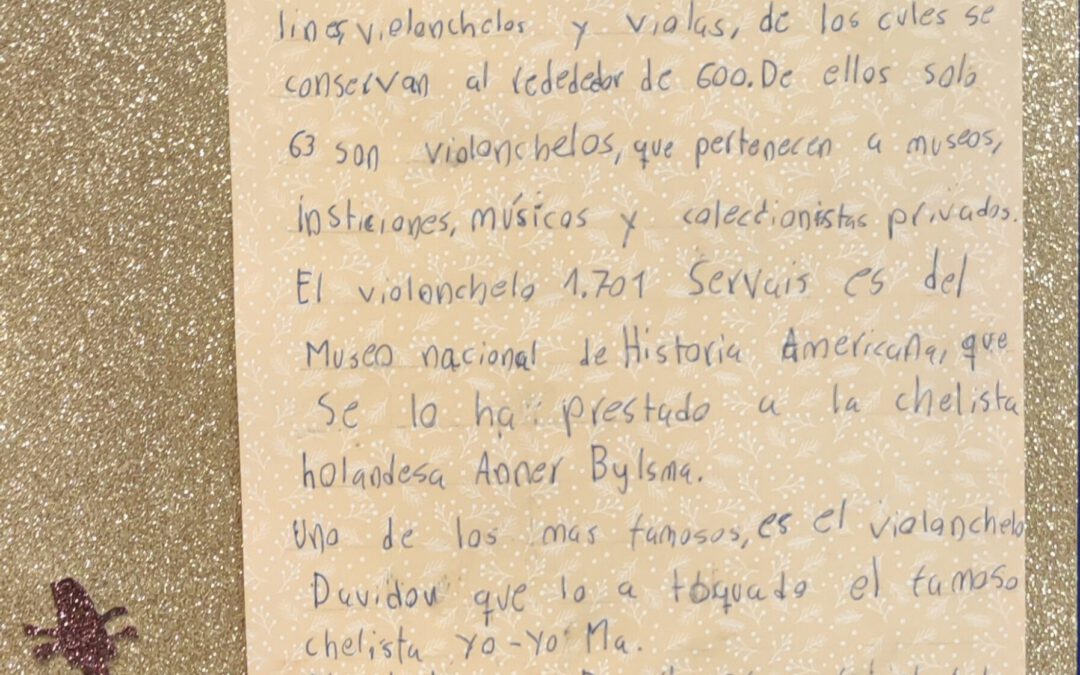 lines, violonchelos y violas, de los cules se
conservan al rededédor de 600. De ellos solo
63 son violonchelos, que pertenecen a museos,
insticiones, músicos y colectionistas privados.
El violonchelo 1.701 Servais es del
Museo nacional de Historia Americana, que
se lo ha prestado a la chelista
holandesa Anner Bylsma.
Uno de los mas famosos, es el violanchelo
Davidou que lo a toquado el famoso
chelista Yo-Yo Ma.